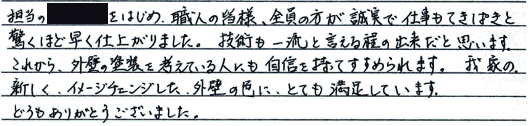 担当の をはじめ、職人の皆様、全員の方が誠実で仕事もてきぱきと
驚くほど早く仕上がりました。技術も一流と言える程の出来だと思います。
これから、外壁の塗装を考えている人にも自信を持てすすめられます。我家の、
新しく、イメージチェンジした、外壁の色に、とても満足しています。
どうもありがとうございました。